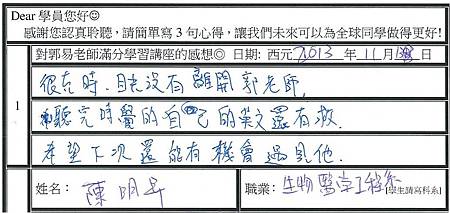 Dear 學員您好☺
感謝您認真聆聽，請簡單寫 3 句心得，讓我們未來可以為全球同學做得更好!
對郭易老師滿分學習講座的感想☺ 日期: 西元 2013 年 11 月 日
1
很在時、目光沒有離開郭老師.
聽完時覺的自己的英文還有救.
希望下次還能有機會遇見他.
姓名: 陳明昇 職業: 生物醫學工程系 [學生請寫科系]